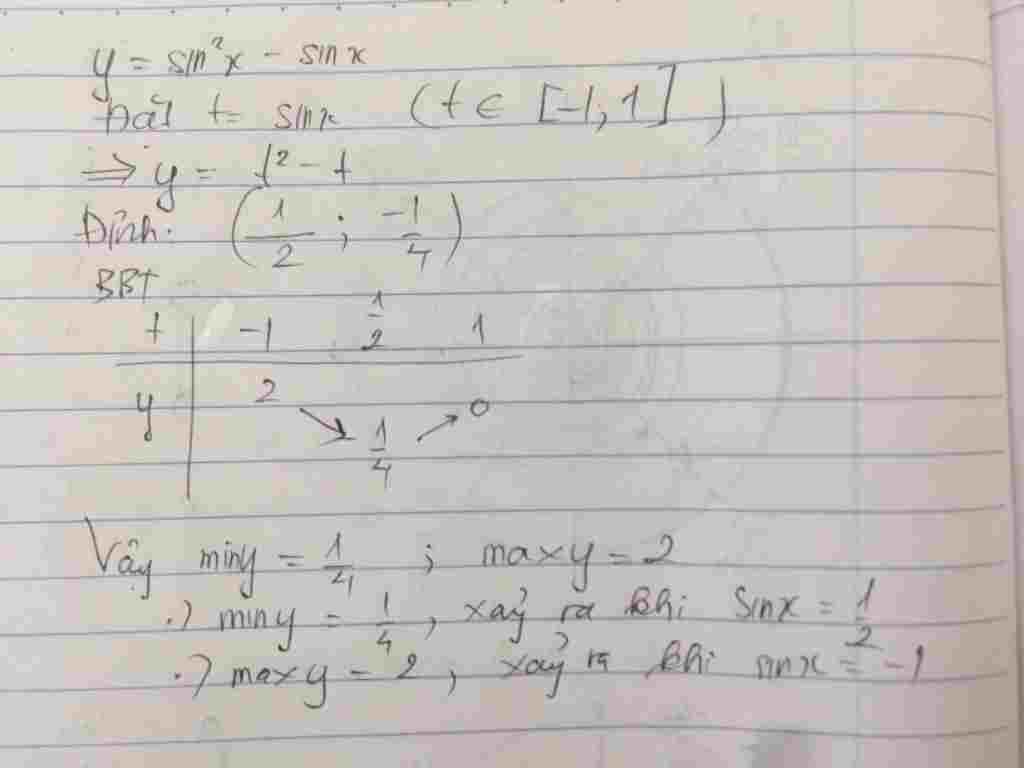 y = sin²x - sinx
Đặt t = sinx (t ∈ [-1, 1])
⇒ y = t² - t
Đỉnh: (1/2 ; -1/4)
BBT
t -1 1/2 1
y 2 ↘ 1/4 ↗ 0
Vậy miny = 1/4 ; maxy = 2
.) miny = 1/4, xảy ra khi sinx = 1/2
.) maxy = 2, xảy ra khi sinx = -1